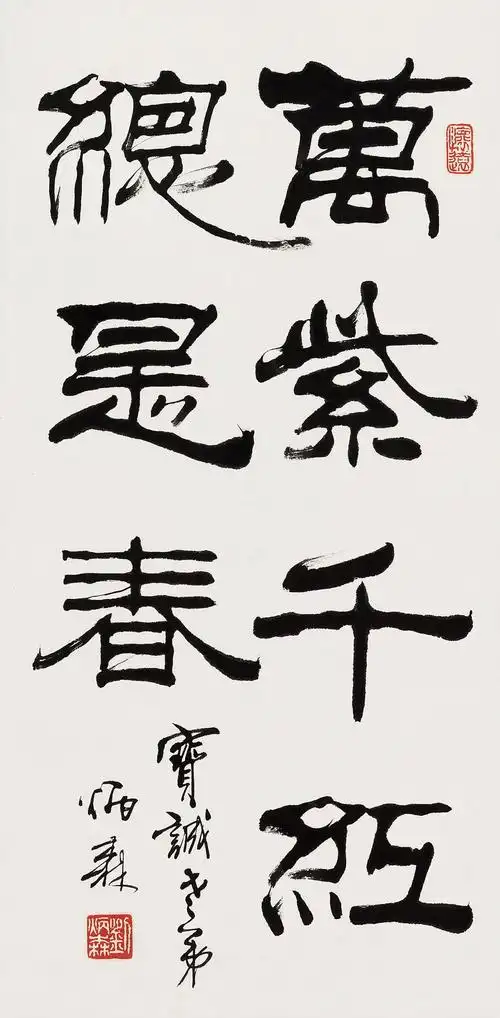 萬紫千紅
總是春
寶誠老弟
炳森
劉炳森